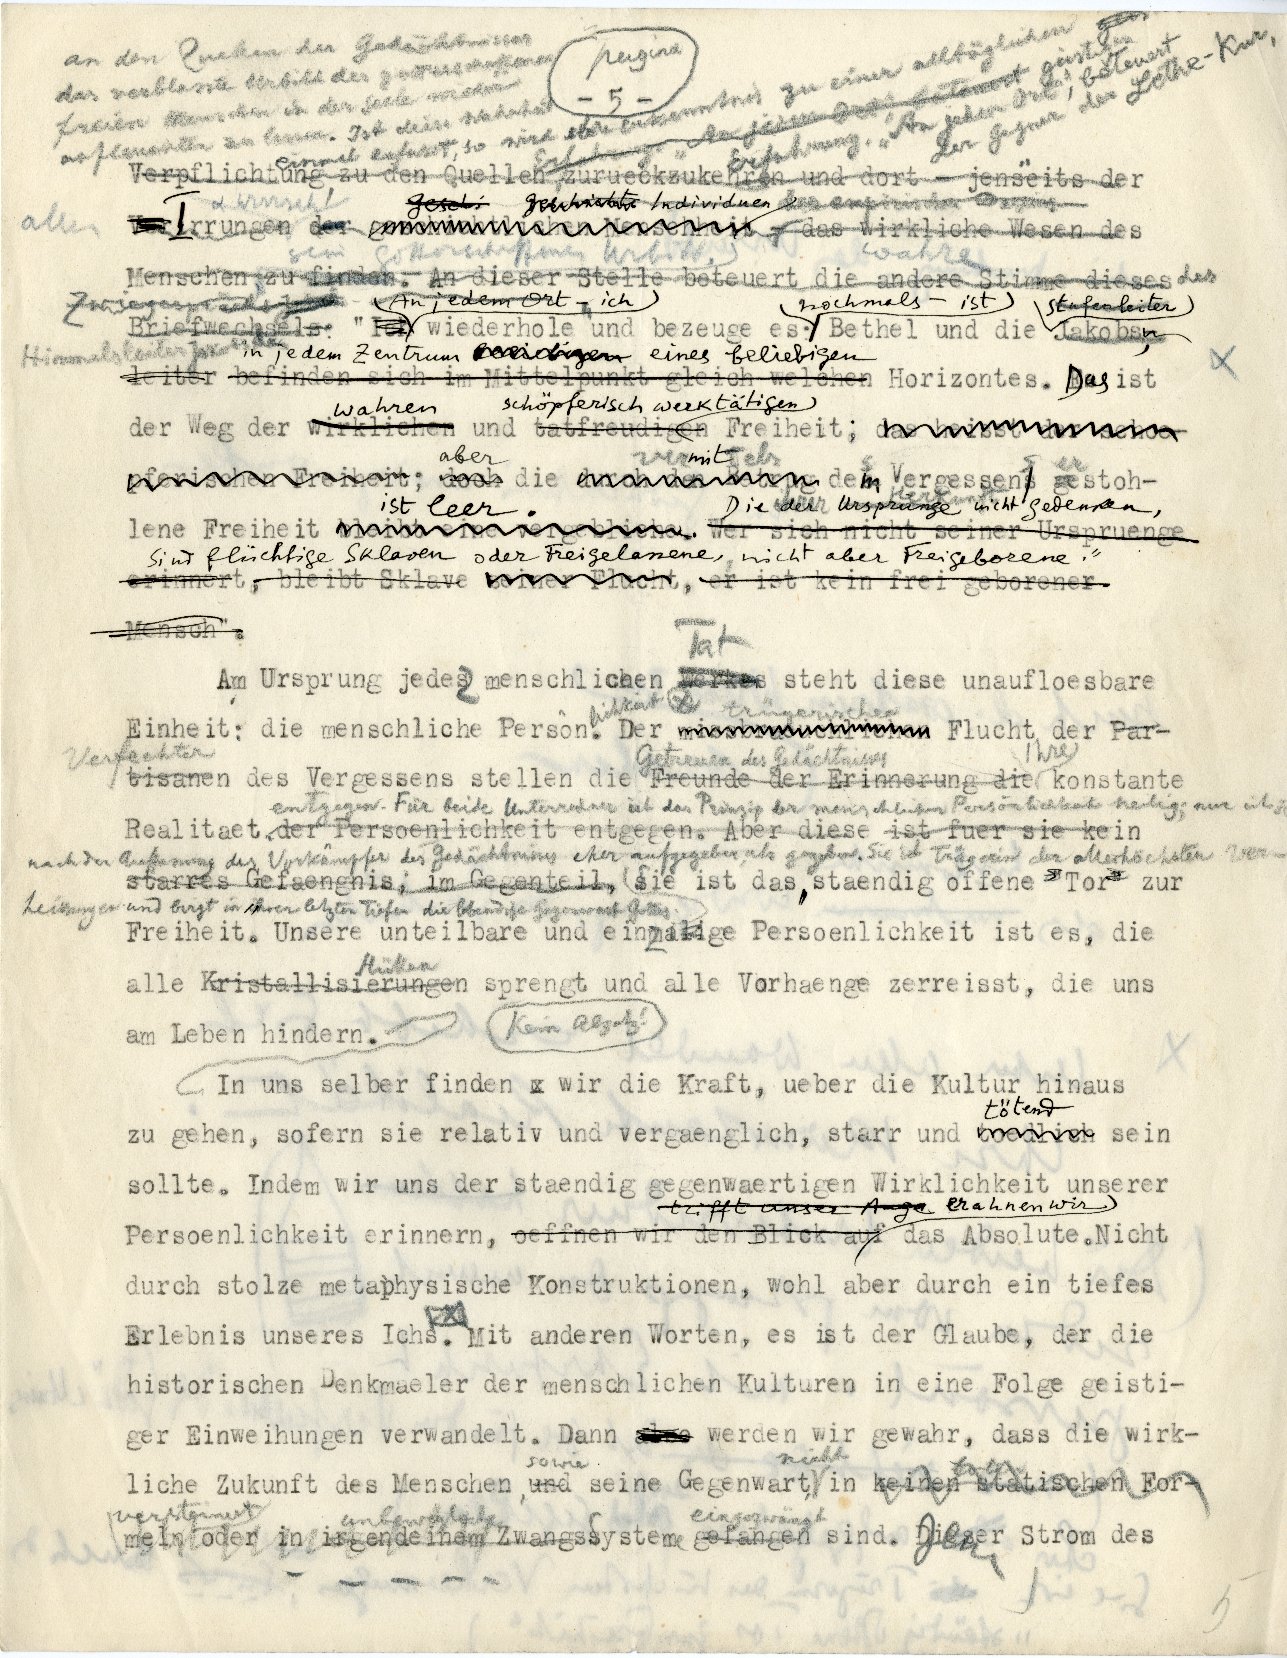 pagina
- 5 -
an den Quellen des Gedächtnisses
das verblasste Urbild des gotterschaffenen
freien Menschen in der Seele wieder
aufleuchten zu lassen. Ist diese Wahrheit
einmal erfasst, so wird Erkenntnis zu einer alltäglichen
geistigen
Erfahrung. "An jedem Ort", beteuert
der Gegner der Lethe-Kur,
Verpflichtung zu den Quellen zurueckzukehren und dort - jenseits der
alle
Individuen
Irrungen der - das Wirkliche Wesen des
sein gotterschaffenes Urbild wahre
Menschen zu finden. An dieser Stelle beteuert die andere Stimme dieses des
Zwiegesprächs
(An jedem Ort - ich) nochmals - ist) Stufenleiter)
Briefwechsels: "Ich wiederhole und bezeuge es: Bethel und die Jakobs-
Himmelsleiter
in jedem Zentrum eines beliebigen
leiter befinden sich im Mittelpunkt gleich welchen Horizontes. Das ist
wahren schöpferisch werktätigen
der Weg der wirklichen und tatfreudigen Freiheit;
aber mit
pferischen Freiheit; doch die dem Vergessen gestoh-
ist leer. Die der Ursprünge nicht gedenken,
lene Freiheit Wer sich nicht seiner Urspruenge
sind flüchtige Sklaven oder Freigelassene, nicht aber Freigeborene."
erinnert, bleibt Sklave seiner Flucht, er ist kein frei geborener
Mensch".
Tat
Am Ursprung jedes menschlichen Werkes steht diese unaufloesbare
trügerischen
Einheit: die menschliche Person. Der Flucht der Par-
Verfechter Getreuen des Gedächtnisses ihre
tisanen des Vergessens stellen die Freunde der Erinnerung die konstante
entgegen. Für beide Unterredner ist das Prinzip der menschlichen Persönlichkeit heilig; nur ist sie
Realitaet der Persoenlichkeit entgegen. Aber diese ist fuer sie kein
nach der Auffassung des Vorkämpfer des Gedächtnisses eher aufgegeben, als gegeben. Sie ist Trägerin der allerhöchsten Ver-
starres Gefaengnis; im Gegenteil, sie ist das staendig offene "Tor" zur
heissungen und birgt in ihren letzten Tiefen die lebendige Gegenwart Gottes.
Freiheit. Unsere unteilbare und einmalige Persoenlichkeit ist es, die
Hüllen
alle Kristallisierungen sprengt und alle Vorhaenge zerreisst, die uns
am Leben hindern. Kein Absatz!
In uns selber finden x wir die Kraft, ueber die Kultur hinaus
tötend
zu gehen, sofern sie relativ und vergaenglich, starr und toedlich sein
sollte. Indem wir uns der staendig gegenwaertigen Wirklichkeit unserer
trifft unser Auge erahnen wir)
Persoenlichkeit erinnern, oeffnen wir den Blick auf das Absolute. Nicht
durch stolze metaphysische Konstruktionen, wohl aber durch ein tiefes
Erlebnis unseres Ichs. Mit anderen Worten, es ist der Glaube, der die
historischen Denkmaeler der menschlichen Kulturen in eine Folge geisti-
ger Einweihungen verwandelt. Dann werden wir gewahr, dass die wirk-
sowie nicht
liche Zukunft des Menschen, und seine Gegenwart, in keinen statischen For-
versteinert eingezwängt
meln oder in irgendeinem Zwangssysteme gefangen sind. Dieser Strom des
5